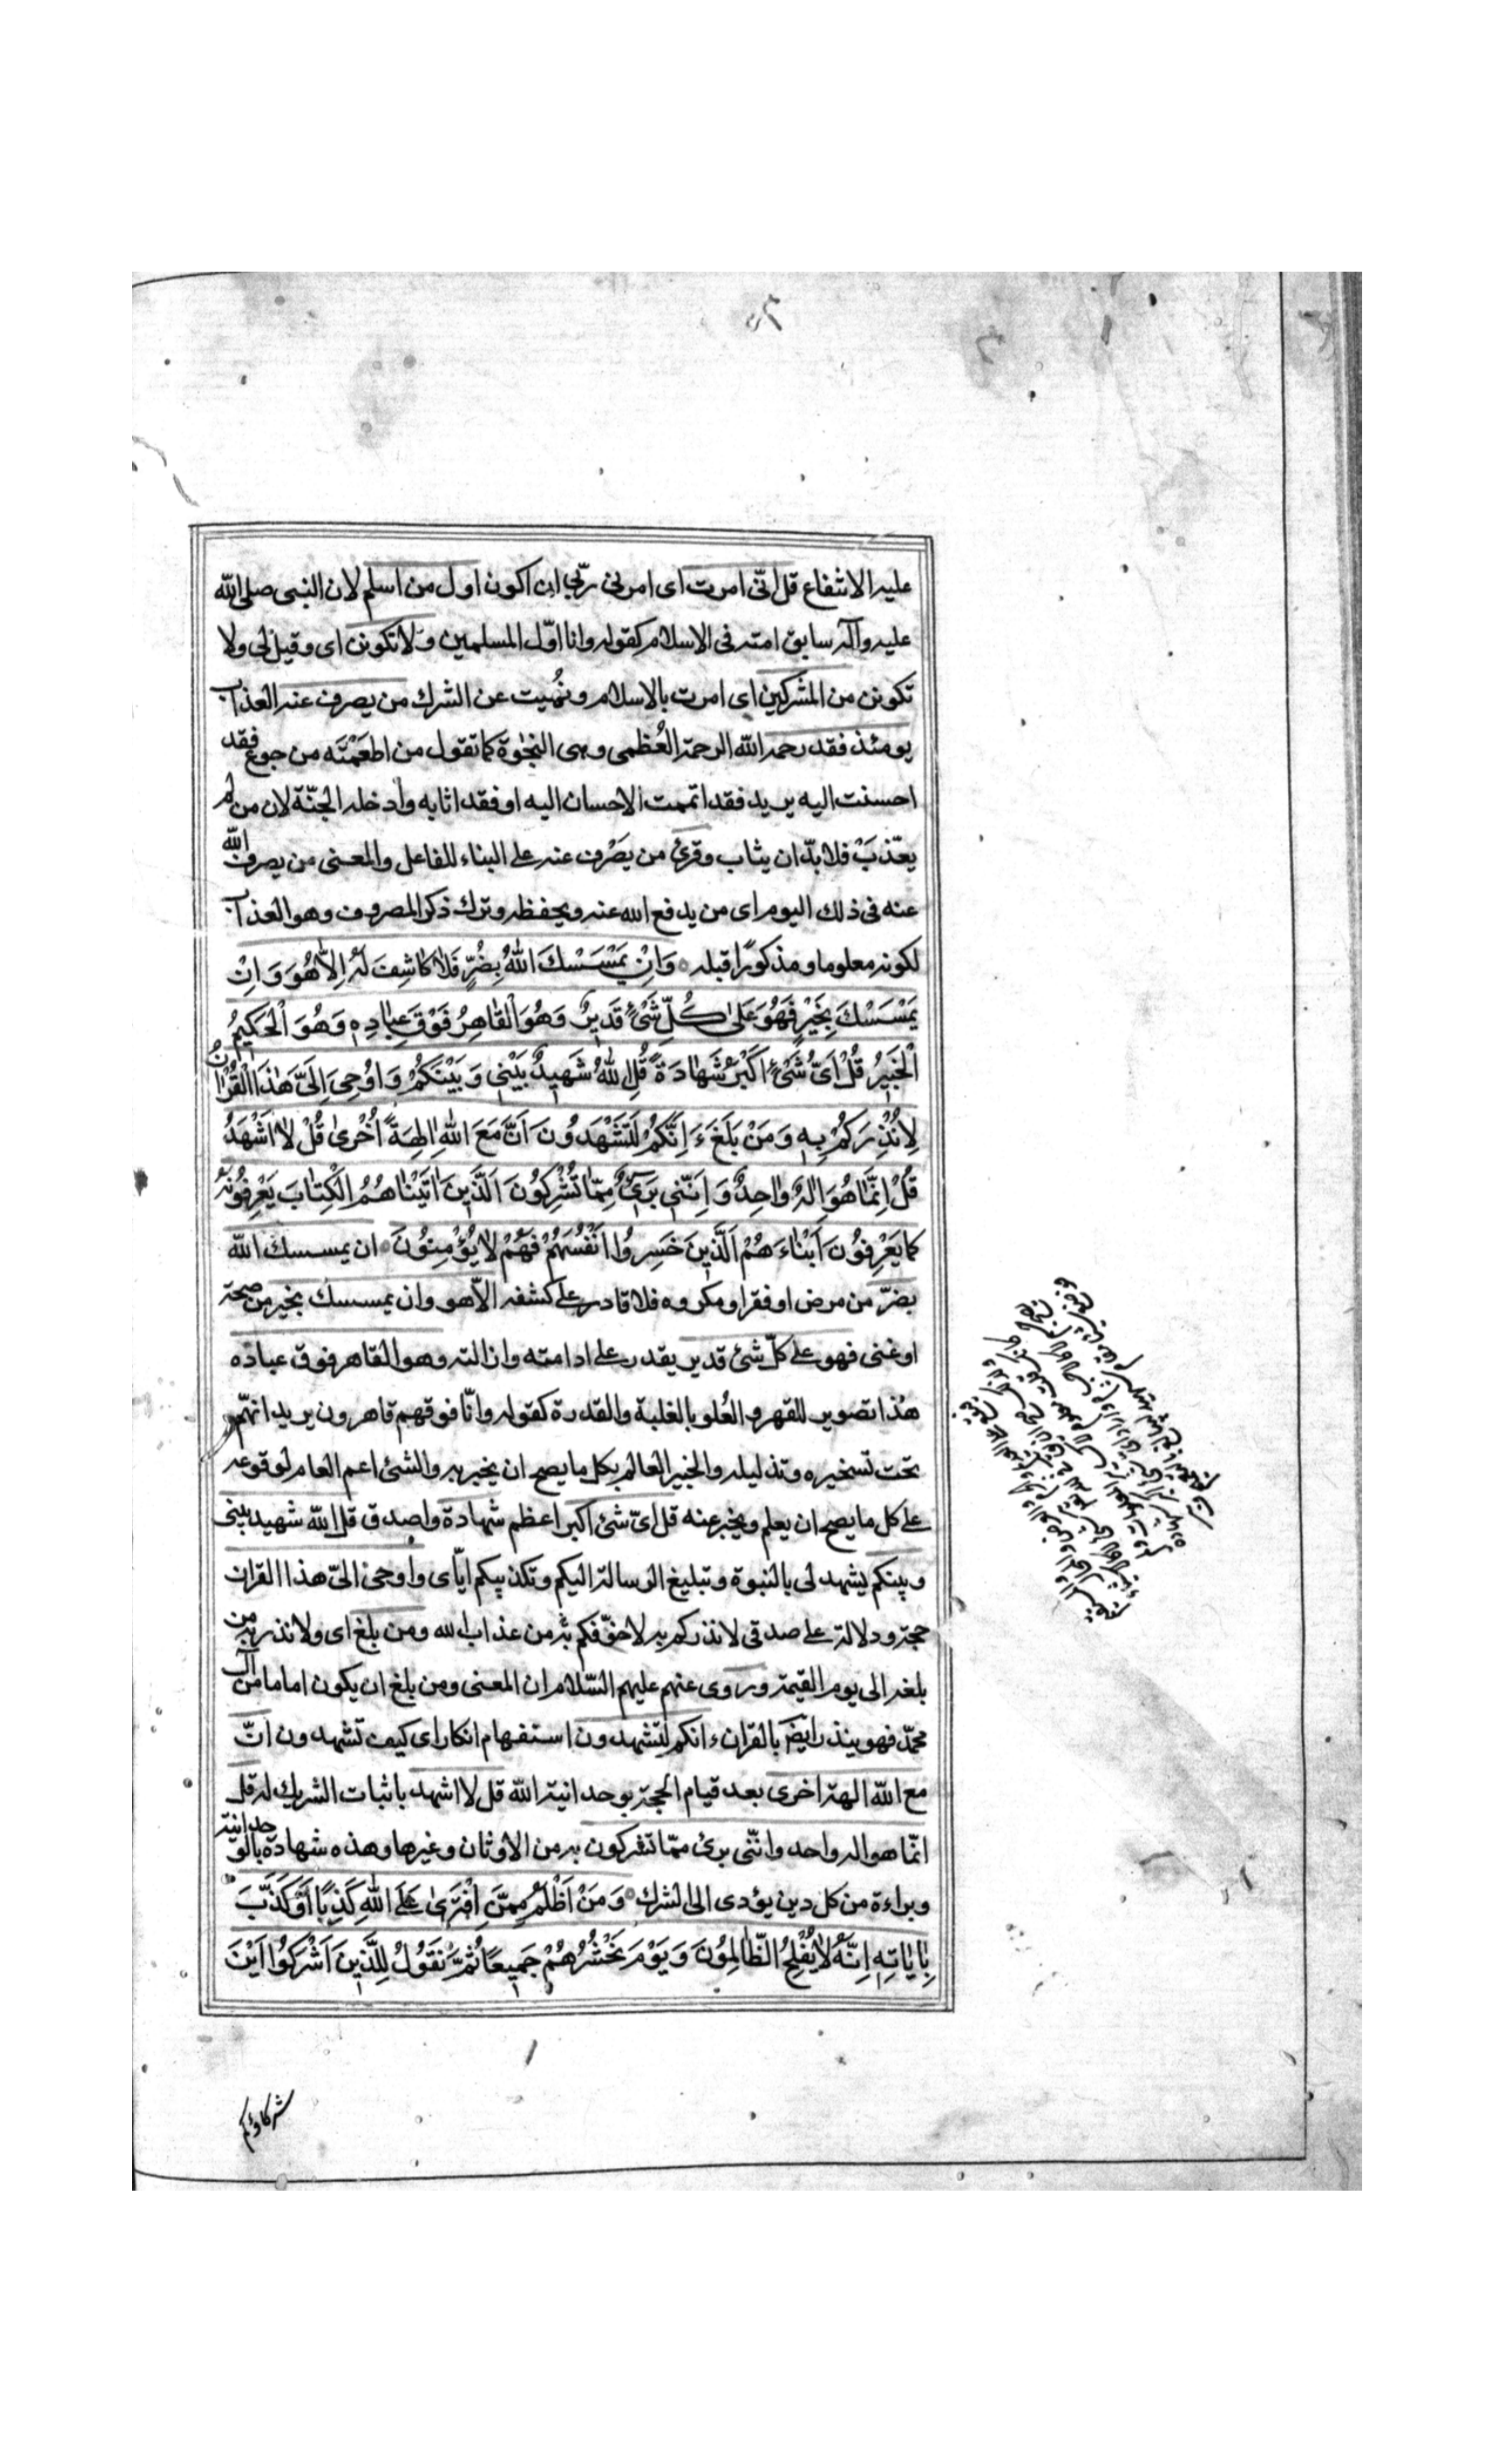 عليه الانتفاع قل انّى امرت اى امرنى ربّى ان اكون اول من اسلم لان النبى صلى الله
عليه وآله سابق امته فى الاسلام كقوله وانا اوّل المسلمين ولا تكونن اى وقيل لى ولا
تكونن من المشركين اى امرت بالاسلام ونُهيت عن الشرك من يصرف عنه العذاب
يومئذ فقد رحمه الله الرحمة العُظمى وهى النجوة كما تقول من اطعَمْتَه من جوع فقد
احسنت اليه يريد فقد اتممت الاحسان اليه او فقد اثابه وأدخله الجنّة لان من لم
يعذّبْ فلابدّ ان يثاب وقرئ من يَصْرف عنه على البناء للفاعل والمعنى من يصرف الله
عنه فى ذلك اليوم اى من يدفع الله عنه ويحفظه وترك ذكر المصروف وهو العذاب
لكونه معلوما ومذكورًا قبله وَاِنْ يَمْسَسْكَ اللهُ بِضُرٍّ فَلاٰ كاٰشِفَ لَهُ اِلاّٰ هُوَ وَاِنْ
يَمْسَسْكَ بِخَيْرٍ فَهُوَ عَلىٰ كُلِّ شَىْءٍ قَديرٌ وَهُوَ الْقاٰهِرُ فَوْقَ عِباٰدِهِ وَهُوَ الْحَكيمُ
الْخَبيرُ قُلْ اَىُّ شَىْءٍ اَكْبَرُ شَهاٰدَةً قُلِ اللهُ شَهيدٌ بَيْنى وَبَيْنَكُمْ وَاُوحِىَ اِلَىَّ هٰذَا الْقُرْاٰنُ
لِاُنْذِرَكُمْ بِهِ وَمَنْ بَلَغَ ءَاِنَّكُمْ لَتَشْهَدُونَ اَنَّ مَعَ اللهِ اٰلِهَةً اُخْرىٰ قُلْ لاٰ اَشْهَدُ
قُلْ اِنَّمٰا هُوَ اِلٰهٌ وٰاحِدٌ وَاِنَّنى بَرىءٌ مِمّٰا تُشْرِكُونَ اَلَّذينَ اٰتَيْنٰاهُمُ الْكِتٰابَ يَعْرِفُونَهُ
كَمٰا يَعْرِفُونَ اَبْنٰاءَهُمْ اَلَّذينَ خَسِرُوا اَنْفُسَهُمْ فَهُمْ لاٰ يُؤْمِنُونَ ان يمسسك الله
بضرّ من مرض او فقر او مكروه فلا قادر على كشفه الاّ هو وان يمسسك بخير من صحة
او غنى فهو على كلّ شئ قدير يقدر على ادامته وازالته وهو القاهر فوق عباده
هذا تصوير للقهر والعُلو بالغلبة والقدرة كقوله وانّا فوقهم قاهرون يريد انهّم
تحت تسخيره وتذليله والخبير العالم بكل ما يصح ان يخبر به والشئ اعم العام لوقوعه
على كل ما يصح ان يعلم ويخبر عنه قل اىّ شئ اكبر اعظم شهادة واصدق قل الله شهيد بينى
وبينكم يشهد لى بالنبوة وتبليغ الرسالة اليكم وتكذيبكم ايّاى واوحى الىّ هذا القران
حجة ودلالة على صدقى لانذركم به لاخوّفكم به من عذاب الله ومن بلغ اى ولانذر به من
بلغه الى يوم القيمة وروى عنهم عليهم السّلام ان المعنى ومن بلغ ان يكون اماما من آل
محمّد فهو ينذر ايضا بالقران ءانكم لتشهدون استفهام انكار اى كيف تشهدون انّ
مع الله الهة اخرى بعد قيام الحجة بوحدانية الله قل لا اشهد باثبات الشريك له قل
انّما هو اله واحد وانّنى برئ ممّا تشركون به من الاوثان وغيرها وهذه شهادة بالوحدانية
وبراءة من كل دين يؤدى الى الشرك وَمَنْ اَظْلَمُ مِمَّنِ افْتَرىٰ عَلَى اللهِ كَذِبًا اَوْ كَذَّبَ
بِاٰيٰاتِهِ اِنَّهُ لاٰ يُفْلِحُ الظّٰالِمُونَ وَيَوْمَ نَحْشُرُهُمْ جَميعًا ثُمَّ نَقُولُ لِلَّذينَ اَشْرَكُوا اَيْنَ
شركاؤكم